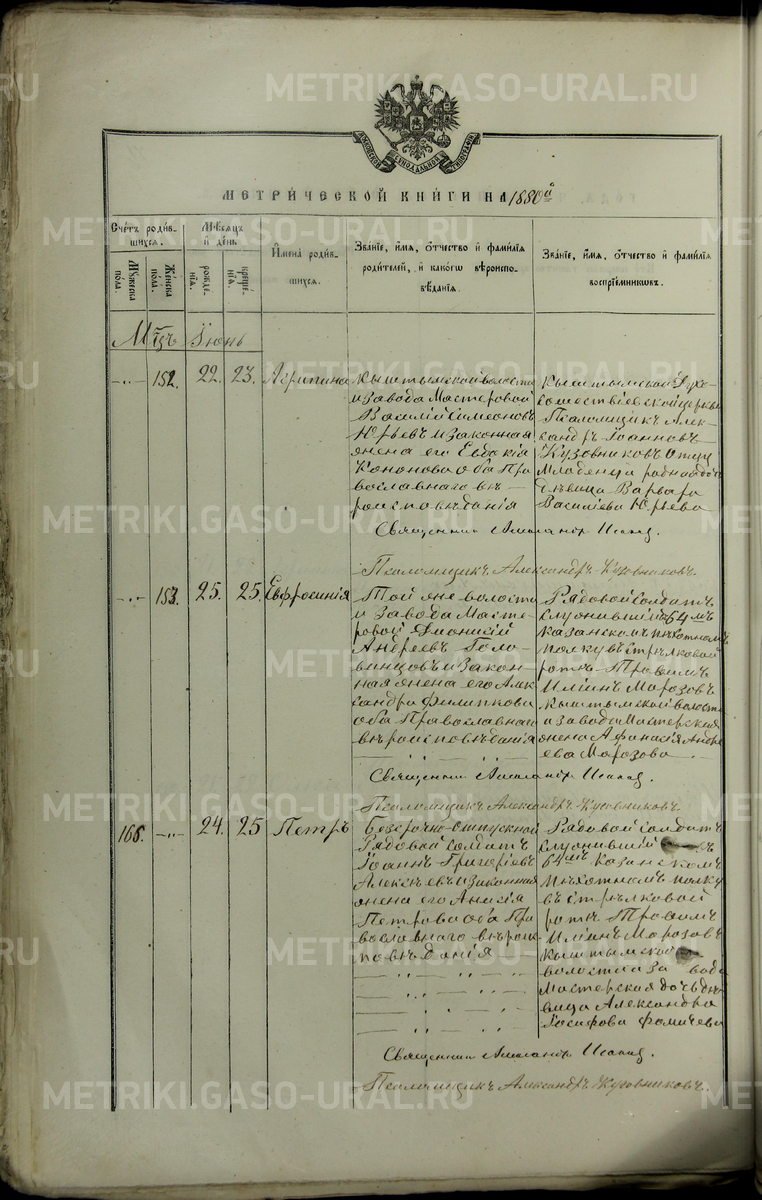 METRIKI.GASO-URAL.RU
МОСКОВСКОЙ СѴНОДАЛЬНОЙ ТИПОГРАФІИ
МЕТРИ́ЧЕСКОЙ КНИ́ГИ НА 1880й
Сче́тъ роди́вшихся.
Му́жеска по́ла.
Же́нска по́ла.
Мѣ́сяцъ и҆ де́нь
рожде́нїѧ.
креще́нїѧ.
И҆мена̀ роди́вшихся.
Зва́нїе, и҆́мѧ, ѻ҆́тчество и҆ фами́лїѧ роди́телей, и҆ како́гѡ вѣроисповѣ́данїѧ.
Зва́нїе, и҆́мѧ, ѻ҆́тчество и҆ фами́лїѧ воспрїе́мникѡвъ.
Мцъ Іюнь
-"- 152. 22. 23. Агрипина
Кыштымской волости
и завода Мастеровой
Василій Симеоновъ
Юрьевъ и законная
жена его Евдокія
Кононова оба Пра
вославнаго вѣ-
роисповѣданія
Кыштымской Духо-
сошествіевской церкви
Псаломщикъ Алек-
сандръ Іоанновъ
Кузовниковъ Отцу
Младенца родная дочь
Дѣвица Варвара
Василіева Юрьева
Священникъ
Псаломщикъ Александръ Кузовниковъ.
-"- 153. 25. 25. Евфросинія
Той же волости
и завода Масте-
ровой Діонисій
Андреевъ Голо-
винцовъ и закон-
ная жена его Алек
сандра Филиппова
оба Православнаго
вѣроисповѣданія
Рядовой солдатъ
служившій 64мъ
Казанскомъ пѣхотномъ
полку въ стрѣлковой
ротѣ Трофимъ
Иліинъ Морозовъ
Кыштымской волости
и завода Мастерская
жена Афанасія Андре
ева Морозова.
Священникъ
Псаломщикъ Александръ Кузовниковъ.
166. -"- 24. 25 Петръ
Безсрочно-отпускной
Рядовой солдатъ
Іоаннъ Григоріевъ
Алексѣевъ и законная
жена его Анисія
Петрова оба Пра
вославнаго вѣроис-
повѣданія
Рядовой солдатъ
служившій въ
64мъ Казанскомъ
Пѣхотномъ полку
въ стрѣлковой
ротѣ Трофимъ
Иліинъ Морозовъ
Кыштымской
волости и завода
Мастерская дочь дѣ
вица Александра
Іосифова Фомичева
Священникъ
Псаломщикъ Александръ Кузовниковъ.